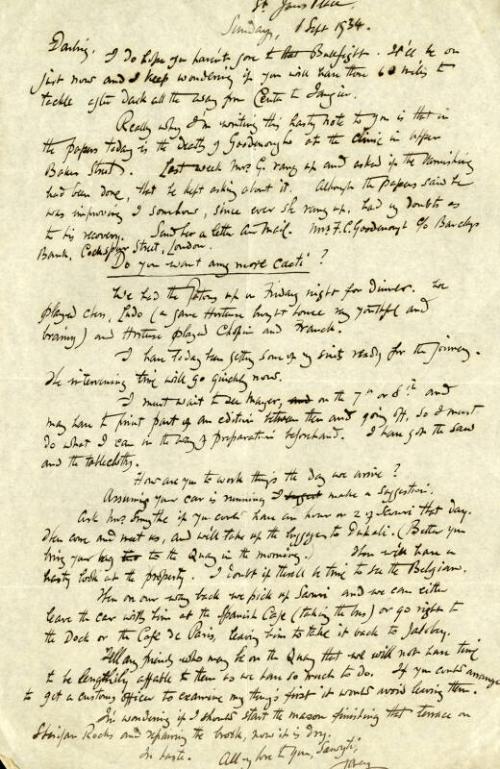 St. James Place.
Sunday, 1 Sept 1934.
Darling. I do hope you haven't gone to the Bullfight. It'll be on
just now and I keep wondering if you will have those 60 miles to
tackle after dark all the way from Ceuta to Tangier.
Really why I'm writing this hasty note to you is that in
the papers today is the death of Goodenough at the clinic in upper
Baker Street. Last week Mrs G. rang up and asked if the varnishing
had been done, that he kept asking about it. Although the papers said he
was improving I somehow, since ever she rang up, had my doubts as
to his recovery. Send her a letter Air Mail. Mrs F.C. Goodenough c/o Barclays
Bank, Cockspur Street, London.
Do you want any more cacti?
We had the up on Friday night for dinner. We
played chess, Ludo (a game Hortense bought home very youthful and
brainy) and Hortense played Chopin and Franck.
I have today been getting some of my suits ready for the journey.
The intervening time will go quickly now.
I must wait to see Mayer, and on the 7th or 8th and
may have to print part of an edition between then and going off, so I must
do what I can in the way of preparation beforehand. I have got the saw
and the tablecloths.
How are you to work things the day we arrive?
Assuming your car is running I suggest make a suggestion.
Ask Mrs Smythe if you could have an hour or 2 of Saouri that day.
Then come and meet us, and will take up the luggage to Dukali. (Better you
bring your key to the Quay in the morning.) Then will have a
hasty look at the property. I doubt if there'll be time to see the Belgian.
Then on our way back we pick up Saouri and we can either
leave the car with him at the Spanish Cafe (taking the bus) or go right to
the Dock or the Cafe de Paris, leaving him to take it back to
Tell any friends who may be on the Quay that we will not have time
to be lengthily affable to them as we have so much to do. If you could arrange
to get a customs officer to examine my things first it would avoid leaving them.
I'm wondering if I should start the mason finishing that terrace on
Rocks and repairing the brook, now it is dry.
In haste. All my love to you,